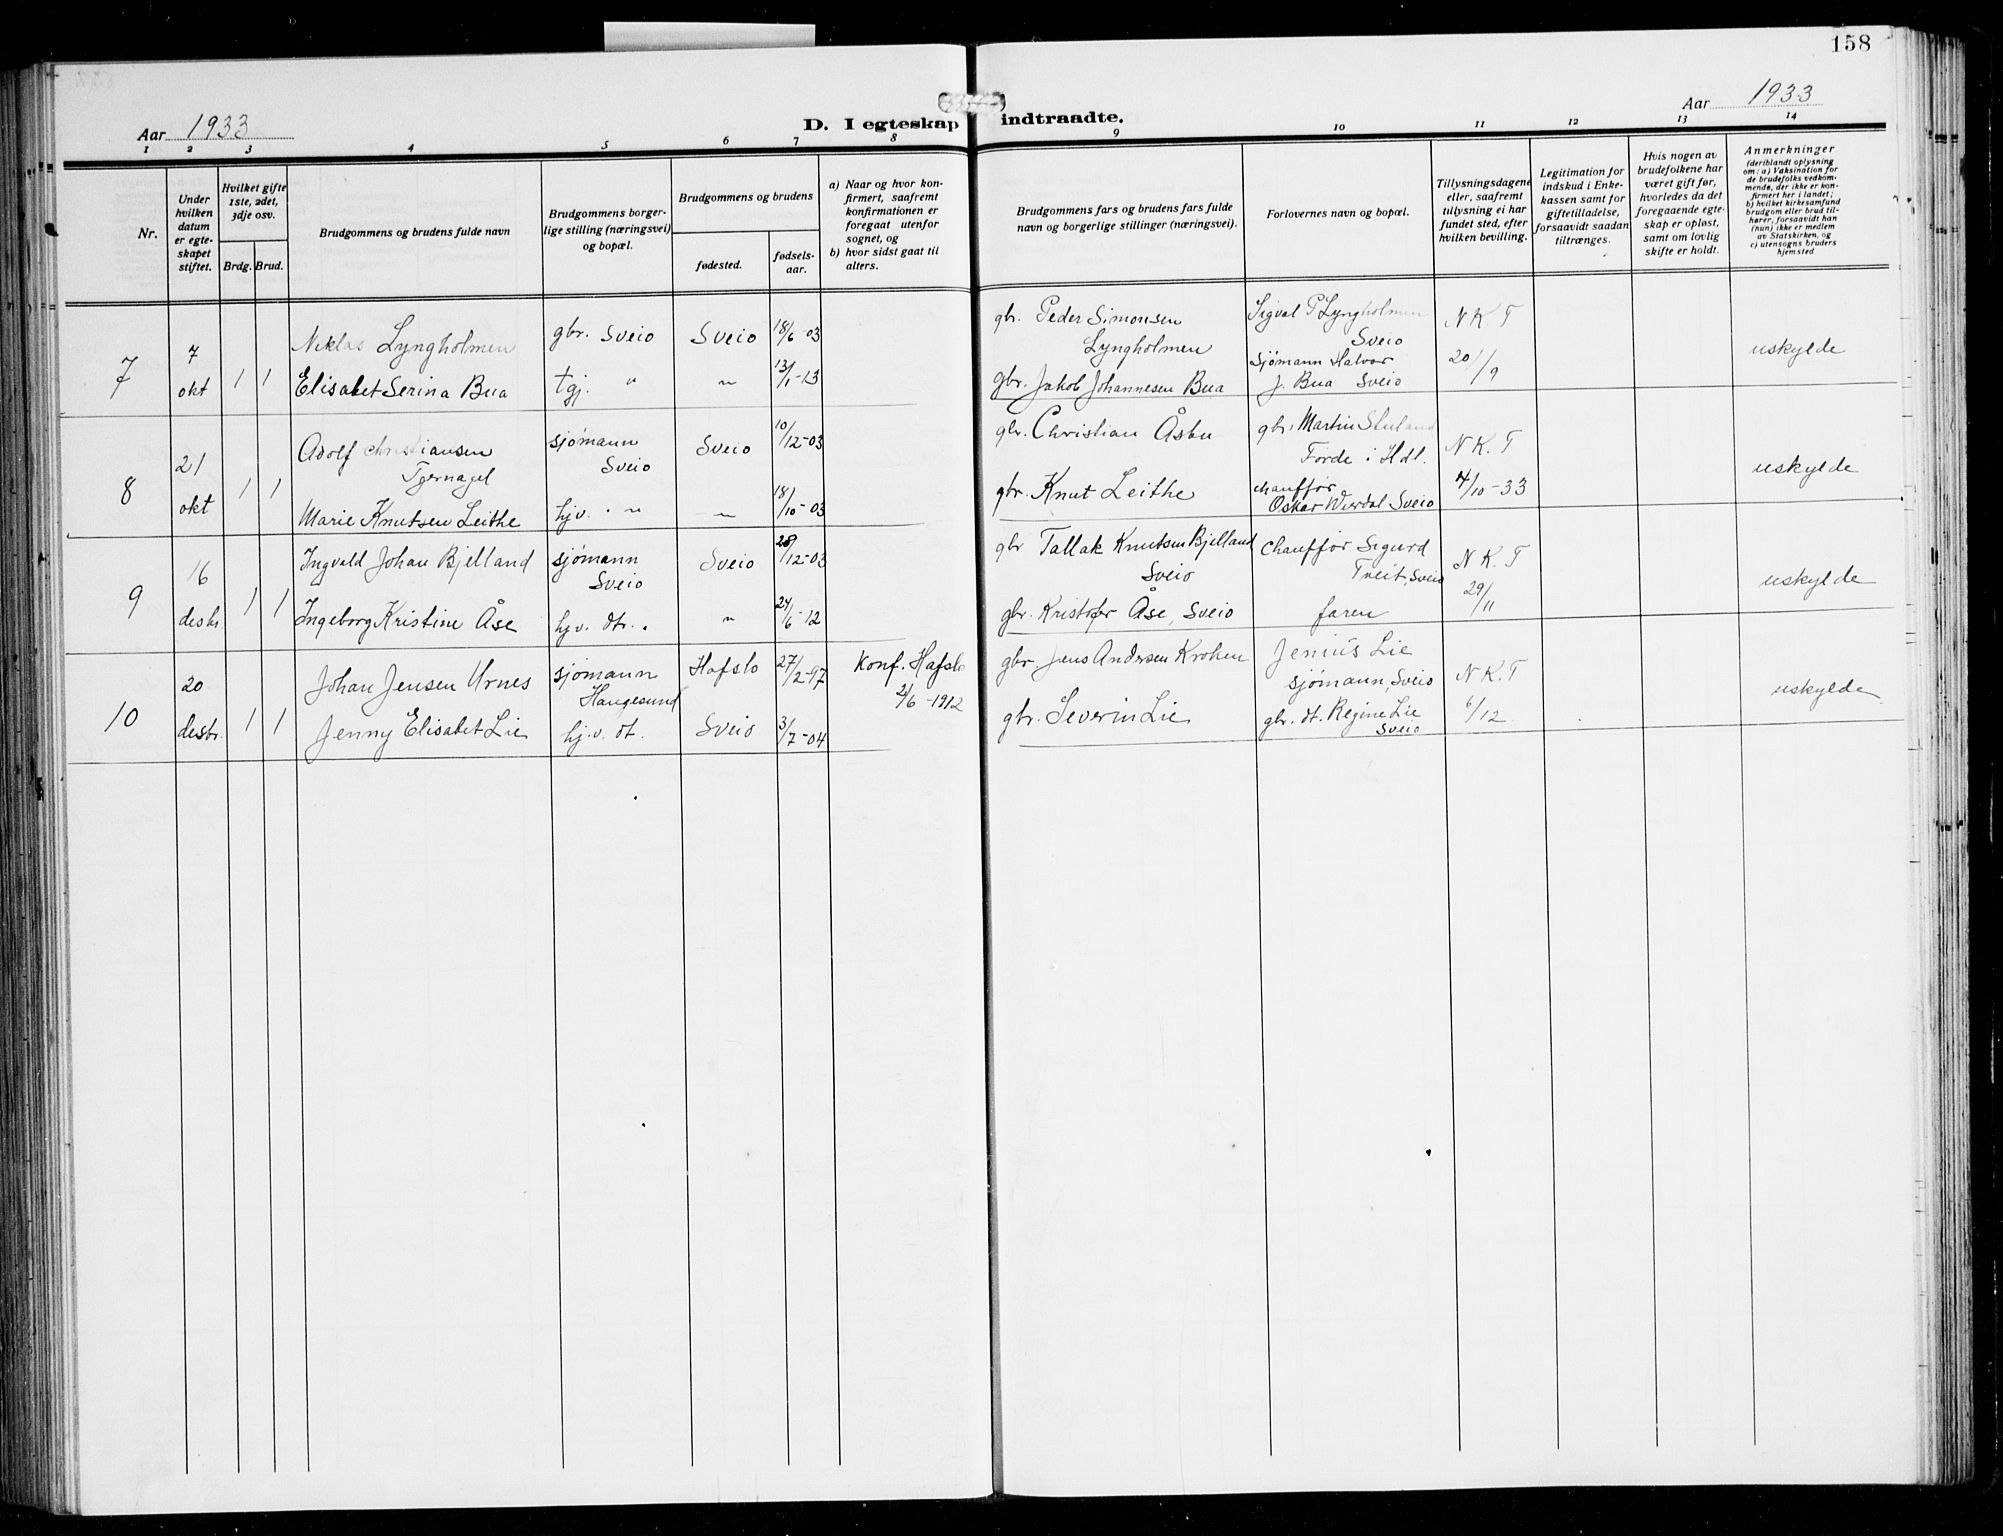 158
Aar 1933
D. I egteskap indtraadte.
Aar 1933
1 2 3 4 5 6 7 8 9 10 11 12 13 14
Nr.
Under hvilken datum er egteskapet stiftet.
Hvilket gifte 1ste, 2det, 3dje osv.
Brdg. Brud.
Brudgommens og brudens fulde navn
Brudgommens borgerlige stilling (næringsvei) og bopæl.
Brudgommens og brudens
fødested.
fødselsaar.
a) Naar og hvor konfirmert, saafremt konfirmationen er foregaat utenfor sognet, og
b) hvor sidst gaat til alters.
Brudgommens fars og brudens fars fulde navn og borgerlige stillinger (næringsvei).
Forlovernes navn og bopæl.
Tillysningsdagene eller, saafremt tillysning ei har fundet sted, efter hvilken bevilling.
Legitimation for indskud i Enkekassen samt for giftetilladelse, forsaavidt saadan tiltrænges.
Hvis nogen av brudefolkene har været gift før, hvorledes da det foregaaende egteskap er opløst, samt om lovlig skifte er holdt.
Anmerkninger
(deriblandt oplysning om: a) Vaksination for de brudefolks vedkommende, der ikke er konfirmert her i landet; b) hvilket kirkesamfund brudgom eller brud tilhører, forsaavidt han (hun) ikke er medlem av Statskirken, og c) utensogns bruders hjemsted
7 7 okt 1 1
Niklas Lyngholmen gbr. Sveio Sveio 18/6-03 gbr. Peder Simonsen Lyngholmen Sigval P Lyngholmen Sveio N K. T
Elisabet Serina Bua tgj. " " 13/1-13 gbr. Jakob Johannesen Bua Sjømann Halvor J. Bua Sveio 20/9 uskylde
8 21 okt 1 1
Adolf Christiansen Tjernagel sjømann Sveio Sveio 10/12-03 gbr. Christian Åsbu gbr. Martin Førde i Hdl. N K. T
Marie Knutsen Leithe hjv. " " 18/10-03 gbr. Knut Leithe chauffør Oskar Sveio 4/10-33 uskylde
9 16 desbr. 1 1
Ingvald Johan Bjelland sjømann Sveio Sveio 28/12-03 gbr Tallak Knutsen Bjelland Sveio Chauffør Sigurd Tveit, Sveio N K. T
Ingeborg Kristine Åse hjv. dtr. " 24/6-12 gbr. Kristofer Åse, Sveio faren 29/11 uskylde
10 20 desbr. 1 1
Johan Jensen Urnes sjømann Haugesund Hafslo 27/2-97 Konf. Hafslo 2/6-1912 gbr. Jens Andersen Kroken Jenius Lie sjømann, Sveio N K. T
Jenny Elisabet Lie hj.v. dt. Sveio 3/7-04 gbr. Severin Lie gbr. dt. Regine Lie Sveio 6/12 uskylde